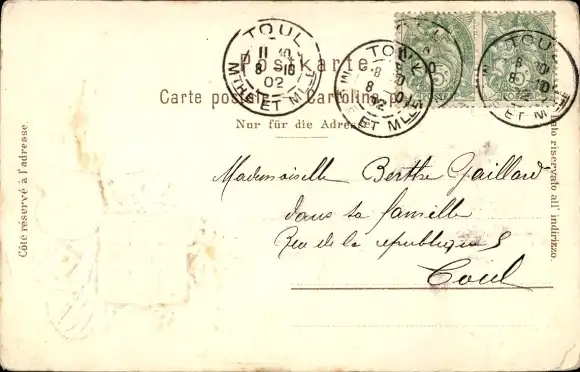 TOUL
11 10
8 - 10
02
MTHE ET MLLE
TOUL
8 10
02
ET MLLE
TOUL
8 10
02
ET M
5
5
POSTE
Postkarte
Carte postale Cartolina
Nur für die Adresse
Côté réservé à l'adresse.
riservato all' indirizzo.
Mademoiselle Berthe Gaillard
dans sa famille
Rue de la republique 5
Toul